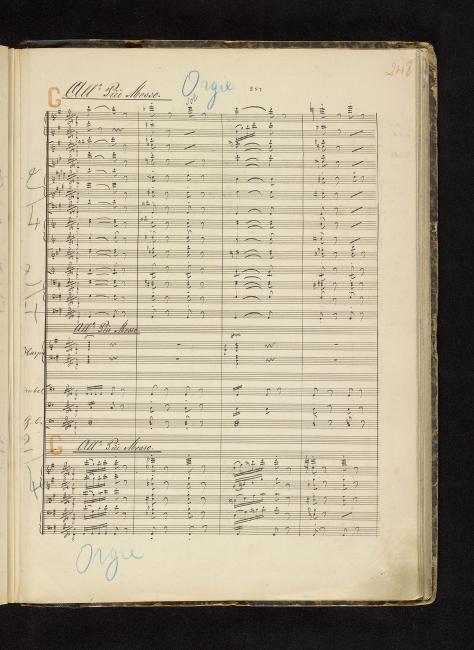 G All° Più Mosso. Orgie 257 248
All° Più Mosso.
Harpe
G. C.
G All° Più Mosso.
Orgie